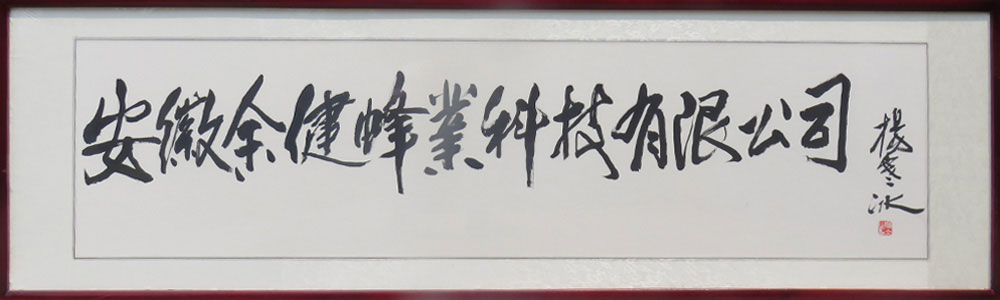 安徽余健蜂業科技有限公司
楊寒冰